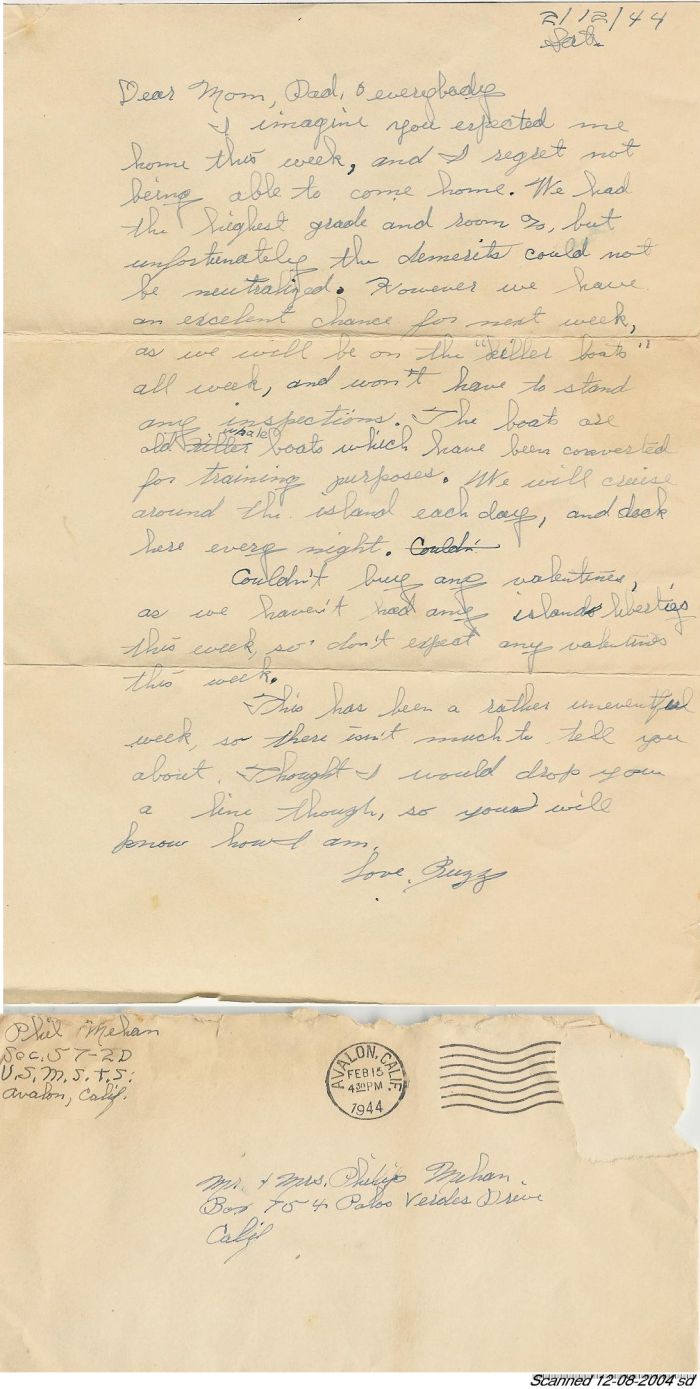 2/12/44
Sat.
Dear Mom, Dad, & everybody
I imagine you expected me
home this week, and I regret not
being able to come home. We had
the highest grade and room %, but
unfortunately the demerits could not
be neutralized. However we have
an excelent chance for next week,
as we will be on the "killer boats"
all week, and won't have to stand
any inspections. The boats are
old killer whale boats which have been converted
for training purposes. We will cruise
around the island each day, and dock
here every night. Couldn
Couldn't buy any valentines,
as we haven't had any island liberties
this week, so don't expect any valentines
this week.
This has been a rather uneventful
week, so there isn't much to tell you
about. Thought I would drop you
a line though, so you will
know how I am.
Love, Buzz
Phil Mehan
Sec. 57-2D
U.S.M.S.T.S.
Avalon, Calif.
AVALON, CALIF.
FEB 15
4 30 PM
1944
Mr. & Mrs. Philip Mehan.
Box 754 Palos Verdes Drive
Calif
Scanned 12-08-2004 sd